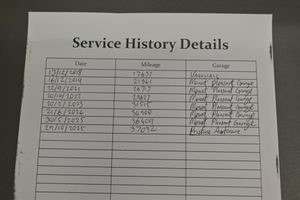 Service History Details
Date Mileage Garage
13/12/2018 17637 Vauxhall
16/12/2019 21961 Mount Pleasant Garage
22/9/2021 26717 Mount Pleasant Garage
20/10/2022 Mount Pleasant Garage
20/12/2023 31515 Mount Pleasant Garage
21/8/2024 Mount Pleasant Garage
30/5/2025 36609 Mount Pleasant Garage
29/10/2025 37092 Pristine